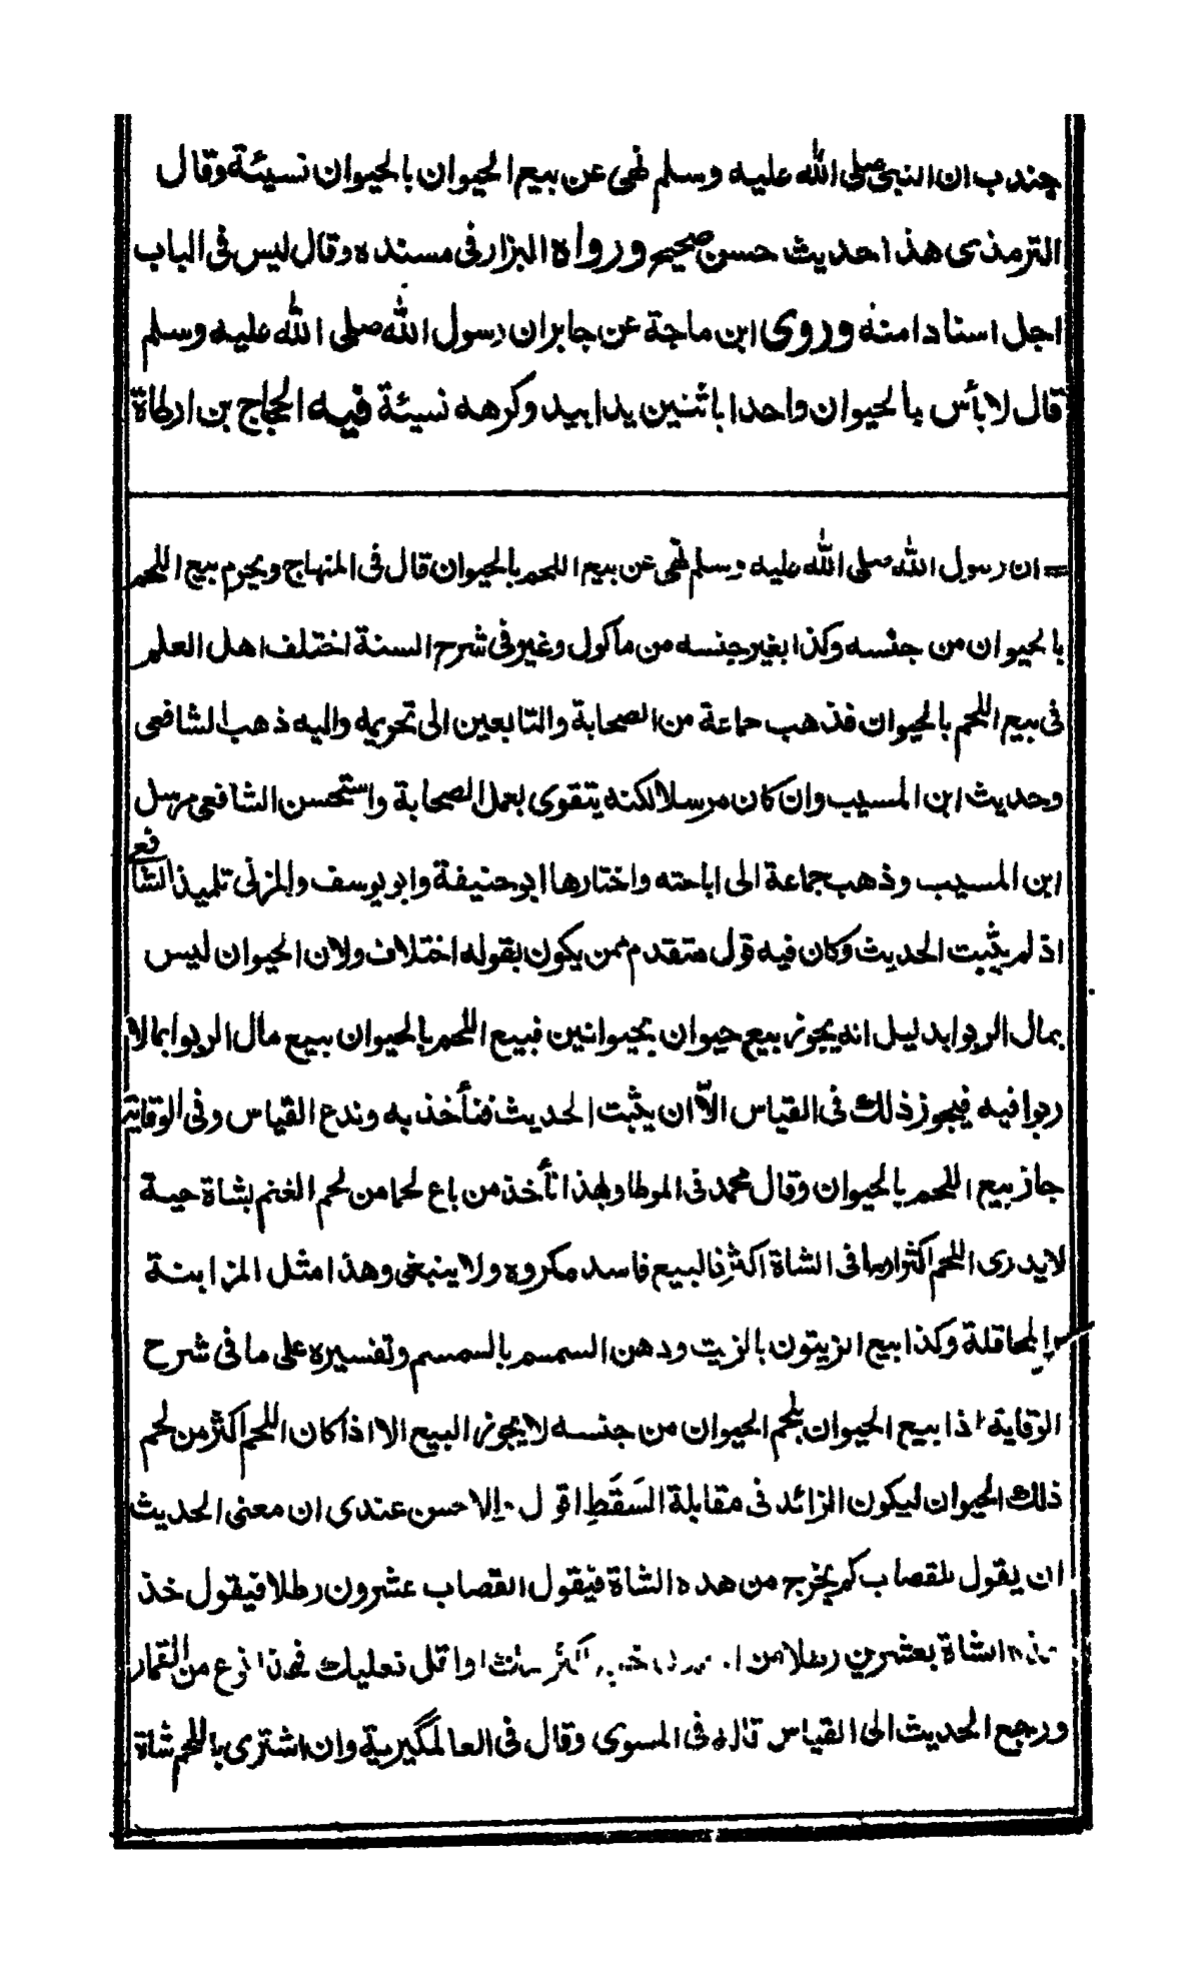 جندب ان النبي صلى الله عليه وسلم نهى عن بيع الحيوان بالحيوان نسيئة وقال
الترمذى هذا حديث حسن صحيح ورواه البزار فى مسنده وقال ليس فى الباب
اجل اسنادا منه وروى ابن ماجة عن جابر ان رسول الله صلى الله عليه وسلم
قال لا بأس بالحيوان واحدا باثنين يدا بيد وكرهه نسيئة فيه الحجاج بن ارطاة
= ان رسول الله صلى الله عليه وسلم نهى عن بيع اللحم بالحيوان قال فى المنهاج ويحرم بيع اللحم
بالحيوان من جنسه وكذا بغير جنسه من ماكول وغيره فى شرح السنة اختلف اهل العلم
فى بيع اللحم بالحيوان فذهب جماعة من الصحابة والتابعين الى تحريمه واليه ذهب الشافعى
وحديث ابن المسيب وان كان مرسلا لكنه يتقوى بعمل الصحابة واستحسن الشافعى مرسل
ابن المسيب وذهب جماعة الى اباحته واختارها ابو حنيفة وابو يوسف والمزنى تلميذ الشافعى
اذ لم يثبت الحديث وكان فيه قول متقدم ممن يكون بقوله اختلاف ولان الحيوان ليس
بمال الربوا بدليل انه يجوز بيع حيوان بحيوانين فبيع اللحم بالحيوان ببيع مال الربوا بما لا
ربوا فيه فيجوز ذلك فى القياس الّا ان يثبت الحديث فنأخذ به وندع القياس وفى الوقاية
جاز بيع اللحم بالحيوان وقال محمد فى الموطا وبهذا نأخذ من باع لحما من لحم الغنم بشاة حية
لا يدرى اللحم اكثر او ما فى الشاة اكثر فالبيع فاسد مكروه ولا ينبغى وهذا مثل المزابنة
والمحاقلة وكذا بيع الزيتون بالزيت ودهن السمسم بالسمسم وتفسيره على ما فى شرح
الوقاية اذا بيع الحيوان بلحم الحيوان من جنسه لا يجوز البيع الا اذا كان اللحم اكثر من لحم
ذلك الحيوان ليكون الزائد فى مقابلة السَقَطِ اقول والاحسن عندى ان معنى الحديث
ان يقول للقصاب كم يخرج من هذه الشاة فيقول القصاب عشرون رطلا فيقول خذ
هذه الشاة بعشرين رطلا من اكثر اواقل فعليك فهذا نوع من القمار
ورجع الحديث الى القياس قاله فى المسوى وقال فى العالمگيرية وان اشترى باللحم شاة